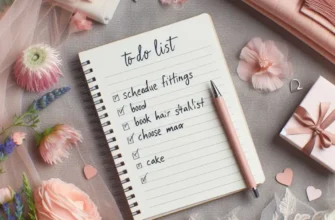 to do list
scheaue fittings
bood
book hair
choose maor
cake